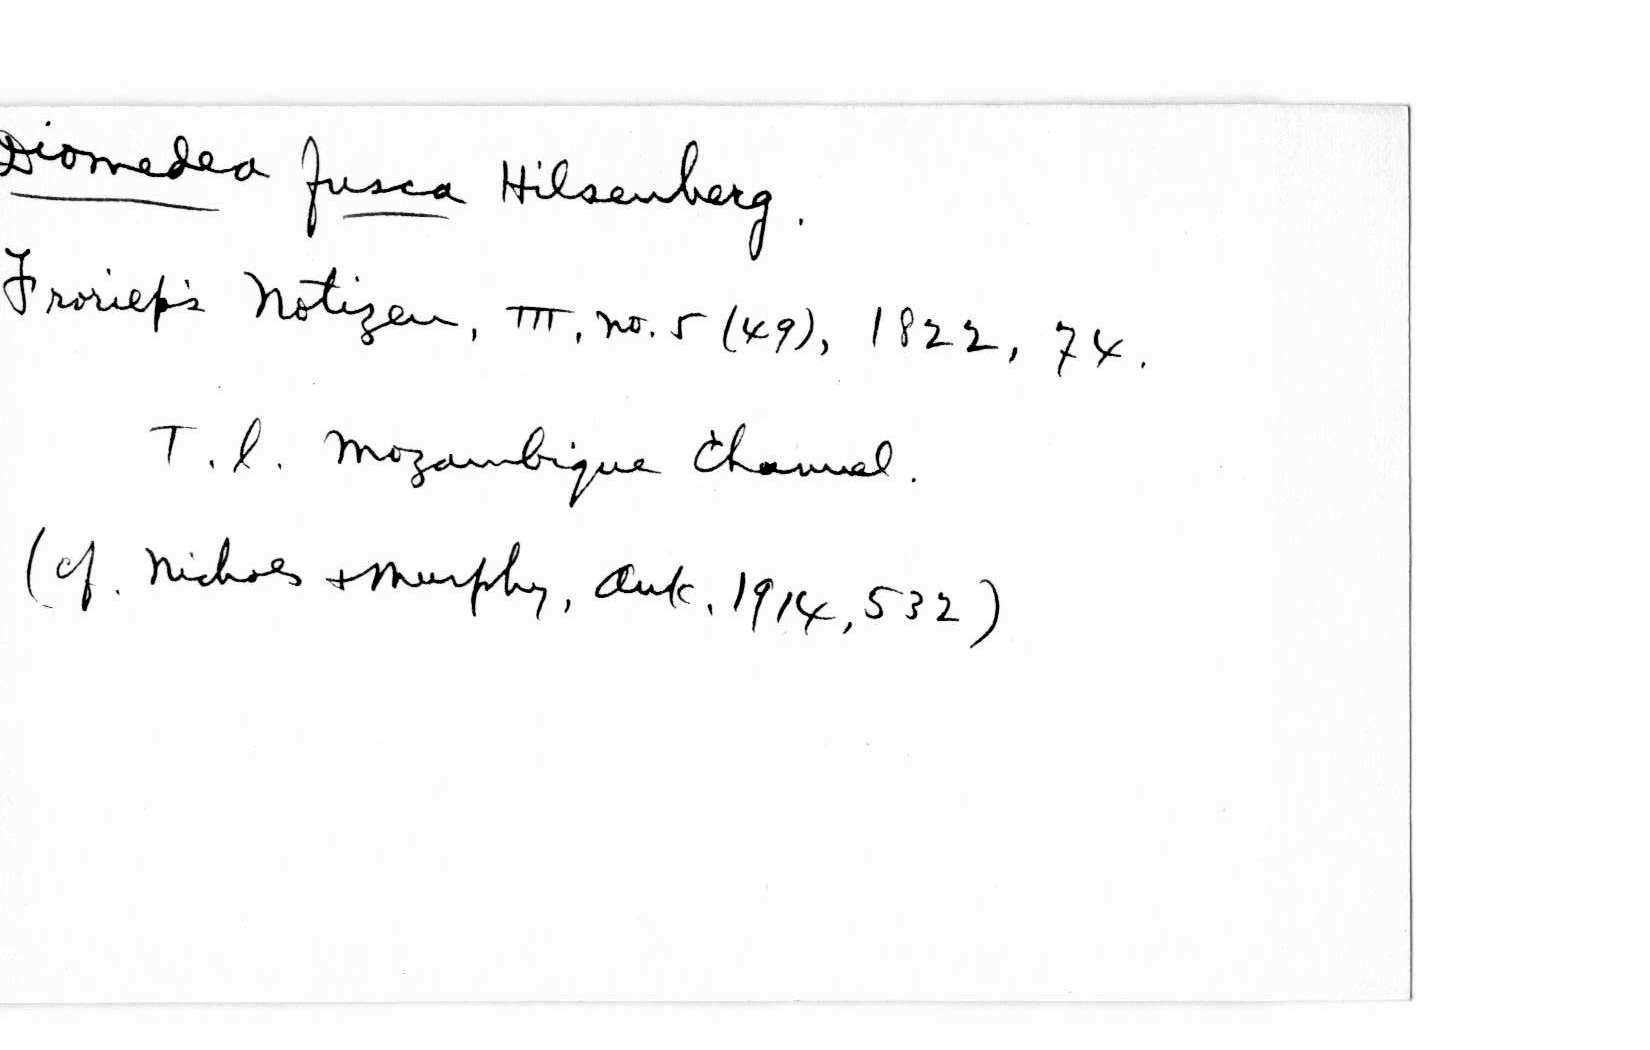 Diomedea fusca Hilsenberg.
Froriep's Notizen, III, no. 5 (49), 1822, 74.
T. l. Mozambique Channel.
(cf. Nichols + Murphy, Auk, 1914, 532)